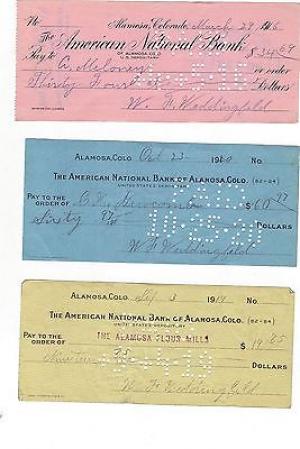 No. Alamosa, Colorado, March 29 1916
The American National Bank
OF ALAMOSA, COLO.
U.S. DEPOSITARY
Pay to A. Meloney or order $34.69
Thirty Four Dollars
W. F. Weddingfeld
ALAMOSA, COLO. Oct 23 1920 No.
THE AMERICAN NATIONAL BANK OF ALAMOSA, COLO. (82-84)
UNITED STATES DEPOSITARY
PAY TO THE
ORDER OF Newcomb $60.97
Sixty 97/100 DOLLARS
W F Weddingfeld
ALAMOSA, COLO. 3 1919 No.
THE AMERICAN NATIONAL BANK OF ALAMOSA, COLO. (82-84)
UNITED STATES DEPOSITARY
PAY TO THE
ORDER OF THE ALAMOSA FLOUR MILLS $19.85
Nineteen DOLLARS
W. F. Weddingfeld